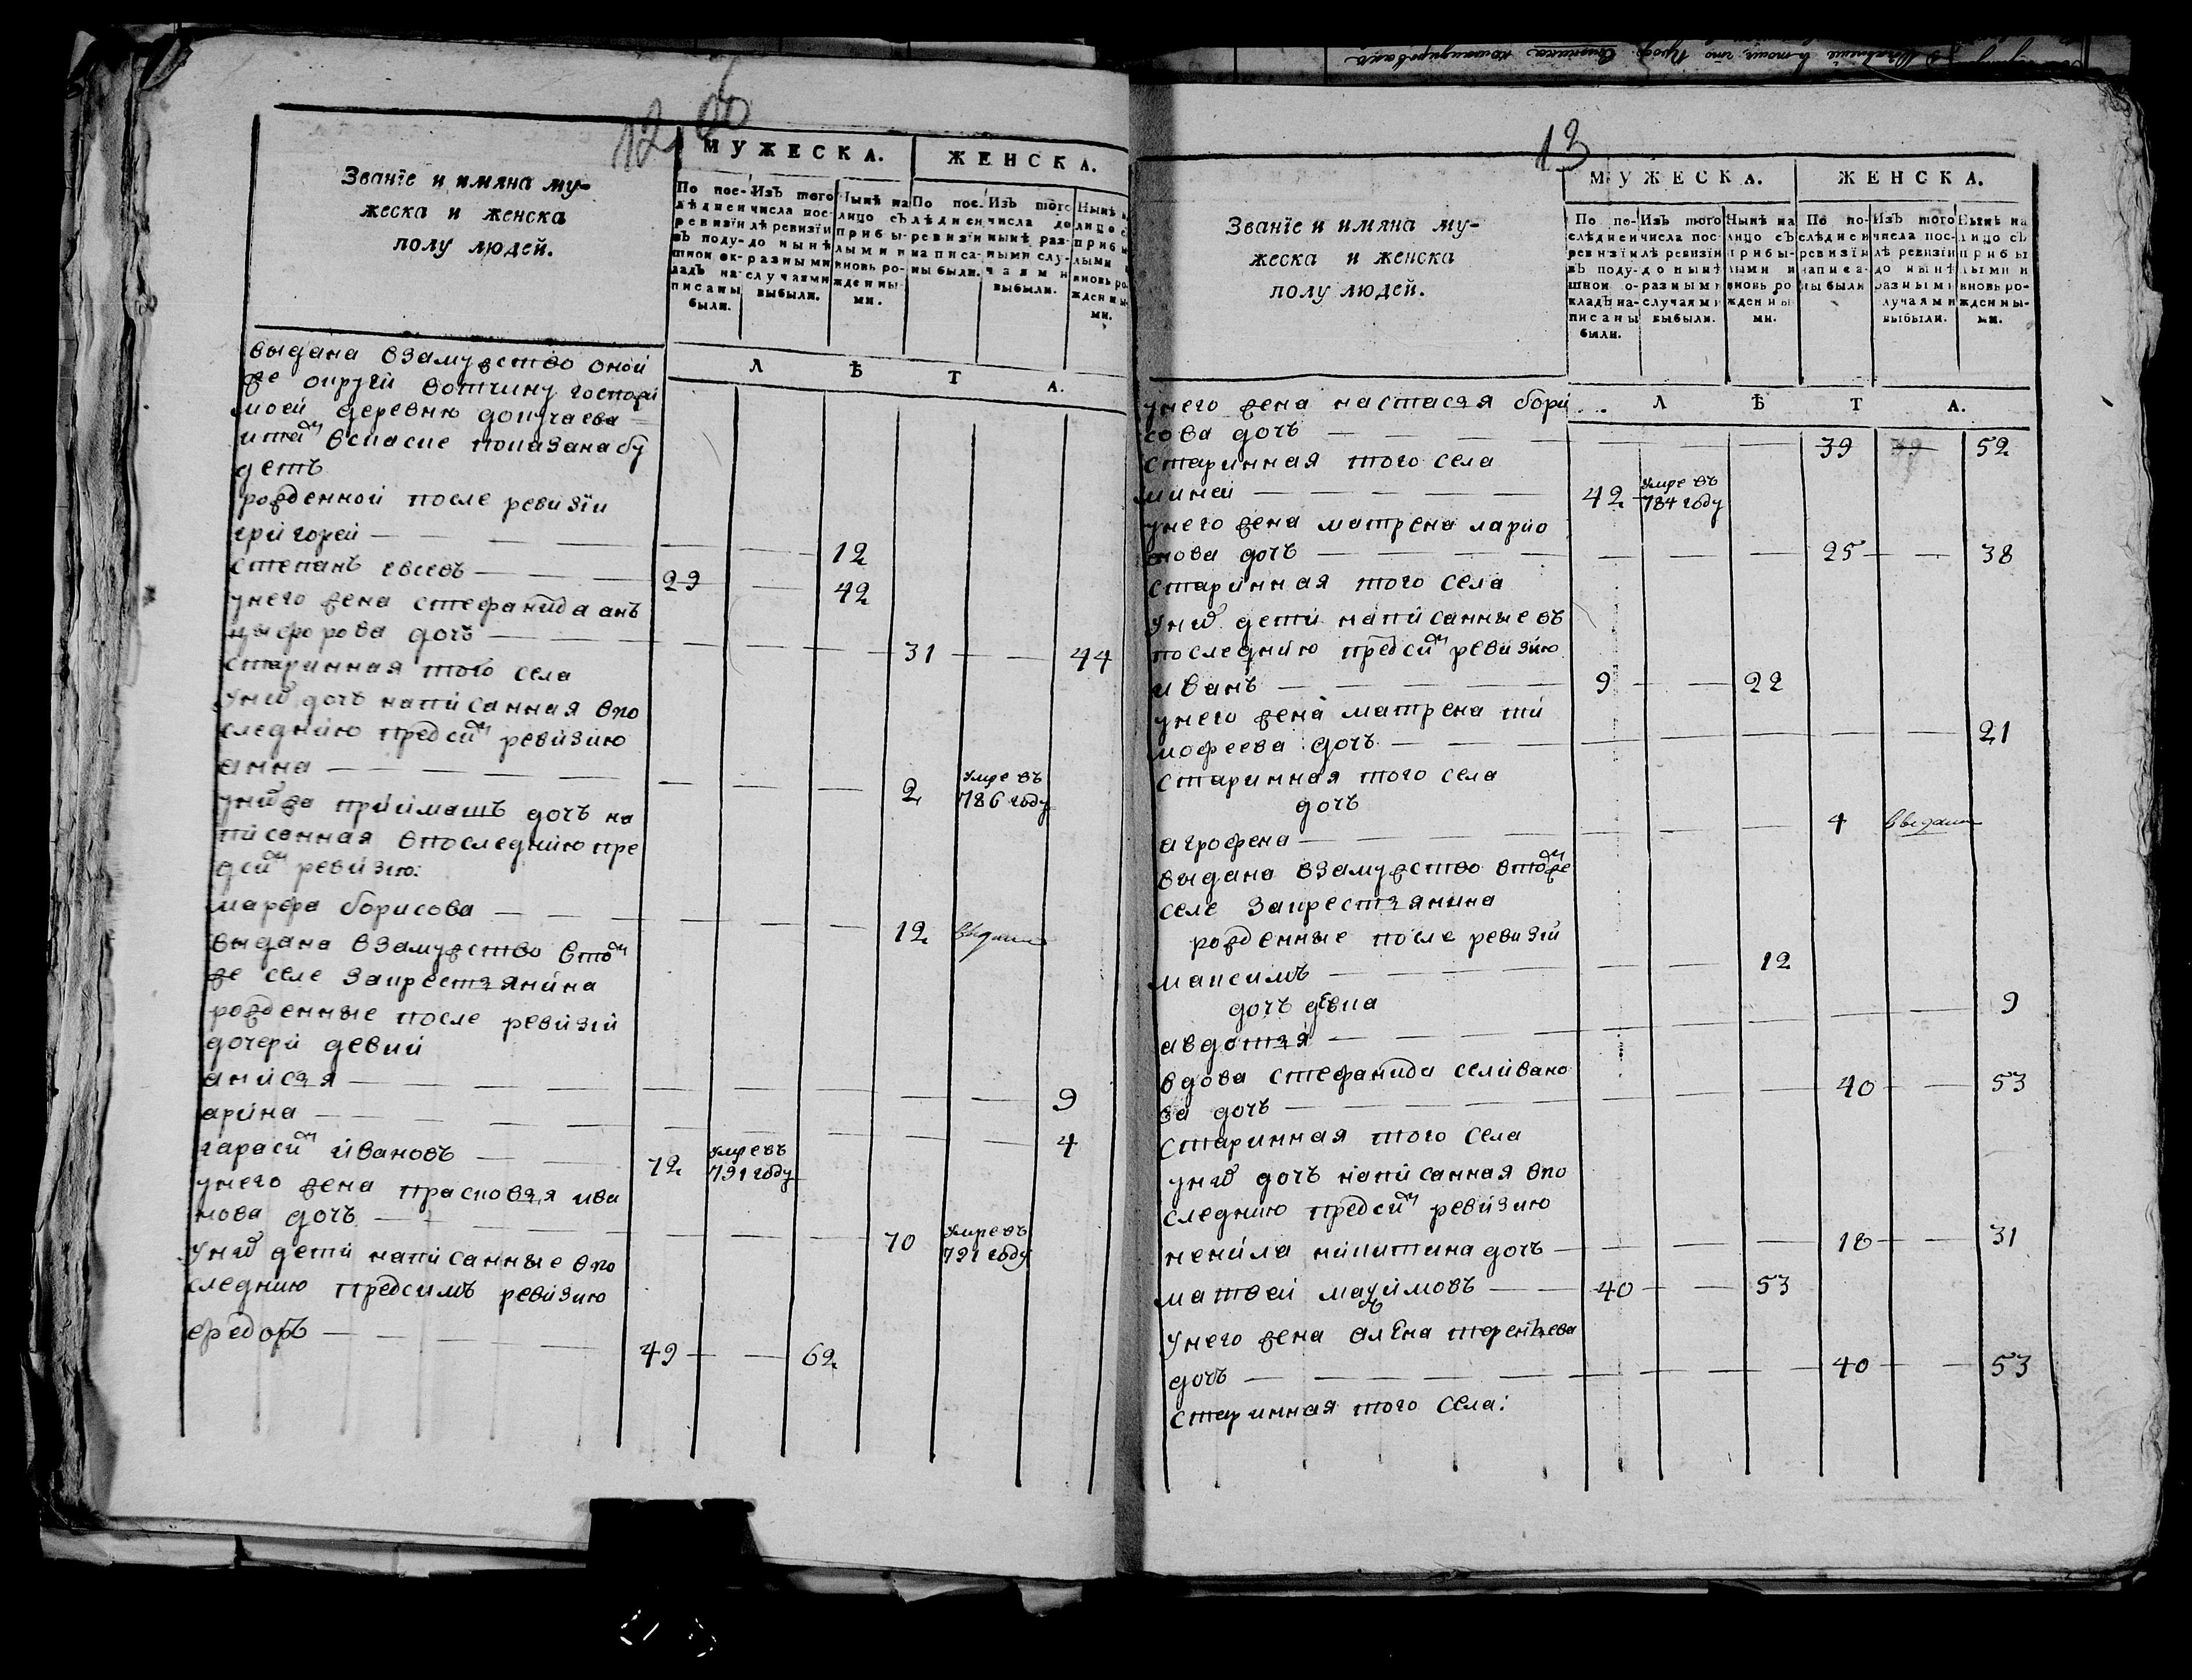 12
Званїе и имяна му-
жеска и женска
полу людей.
МУЖЕСКА.
ЖЕНСКА.
По пос-
лѣдней
ревизїи
въ поду-
шной ок-
ладъ на-
писаны
были.
Изъ того
числа пос-
лѣ ревизїи
до нынѣ
разными
случаями
выбыли.
Нынѣ на
лицо съ
прибы-
лыми и
вновь ро-
жденны-
ми.
По пос-
лѣдней
ревизїи
написа-
ны были.
Изъ того
числа до
нынѣ раз-
ными слу-
чаями
выбыли.
Нынѣ
лицо
прибы
лыми
вновь ро-
жденны-
ми.
Л Ѣ Т А.
выдана взамужство оной
же округи вотчину госпожи
моей деревню
вспаске показана бу
детъ
рожденной после ревизїи
григорей — 12
степанъ евсевъ — 29 — 42
унего жена стефанида анъ
цыфорова дочь — 31 — 44
старинная того села
унихъ дочь написанная впо
следнюю предсим ревизию
анна — 2 умре въ 786 году
унихъ жа приимашъ дочь на
писанная впоследнюю пре
дсим ревизию:
марфа борисова — 12 выдана
выдана взамужство втом
же селе закрестьянина
рожденные после ревизїи
дочери девки
анисья — 9
арина — 4
гарасим ивановъ — 72 умре въ 791 году
унего жена прасковья ива
нова дочь — 70 умре въ 791 году
уних дети написанные впо
следнию предсимъ ревизию
федоръ — 49 — 62
13
Званїе и имяна му-
жеска и женска
полу людей.
МУЖЕСКА.
ЖЕНСКА.
По по-
слѣдней
ревизїи
въ поду-
шной о-
кладъ на-
писаны
были.
Изъ того
числа пос-
лѣ ревизїи
до нынѣ
разными
случаями
выбыли.
Нынѣ на
лицо съ
прибы-
лыми и
вновь ро
жденны
ми.
По по-
слѣдней
ревизїи
написа-
ны были
Изъ того
числа пос-
лѣ ревизїи
до нынѣ
разными
случаями
выбыли.
Нынѣ на
лицо съ
прибы
лыми и
вновь ро-
жденны-
ми.
Л Ѣ Т А.
унего жена настасья бори
сова дочь — 39 39 52
старинная того села
миней — 42 умре въ 784 году
унего жена матрена ларио
нова дочь — 25 — 38
старинная того села
уних дети написанные въ
последнию предсим ревизию
иванъ — 9 — 22
унего жена матрена ти
мофеева дочь — 21
старинная того села
дочь
агрофена — 4 выдана
выдана взамужство втомже
селе закрестьянина
рожденные после ревизїи
максимъ — 12
дочь девка
авдотья — 9
вдова стефанида селивано
ва дочь — 40 — 53
старинная того села
уних дочь написанная впо
следнию предсим ревизию
ненила никитина дочь — 18 — 31
матвей мазимовъ — 40 — 53
унего жена алена терентьева
дочь — 40 — 53
старинная того села: